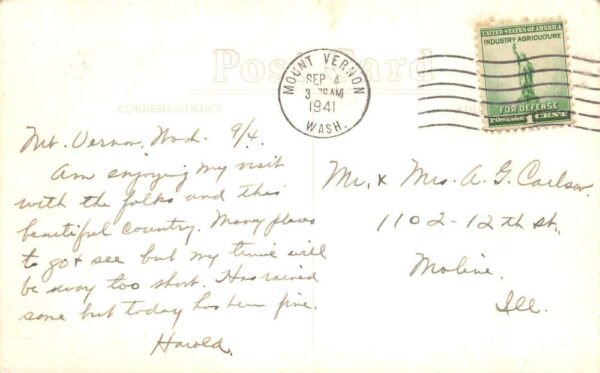 Post Card
CORRESPONDENCE
MOUNT VERNON
SEP 4
3 30AM
1941
WASH.
UNITED STATES OF AMERICA
INDUSTRY-AGRICULTURE
FOR DEFENSE
POSTAGE 1 CENT
Mt. Vernon, Wash. 9/4.
Am enjoying my visit
with the folks and this
beautiful country. Many places
to go & see but my time will
be away too short. Has rained
some but today has been fine.
Harold.
Mr. & Mrs. A. G. Carlson.
1102-12th St.
Moline.
Ill.